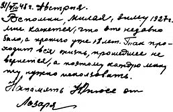 31/VIII 48г. Австрия.
Вспомни, милая, зиму 1929г.
мне кажется, что это недавно
было, а прошло уже 19 лет. Так про-
ходит вся жизнь, прошедшее не
вернется, а поэтому каждую мину
ту нужно использовать.
На память Нюсе от
Лазаря